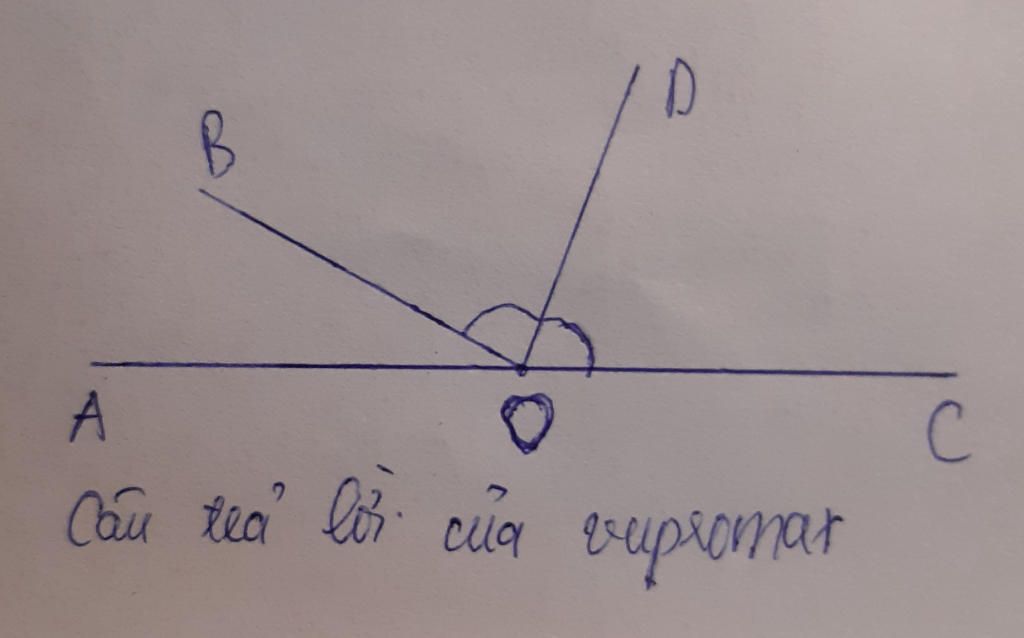 B
D
A
O
C
Câu trả lời của vupromax